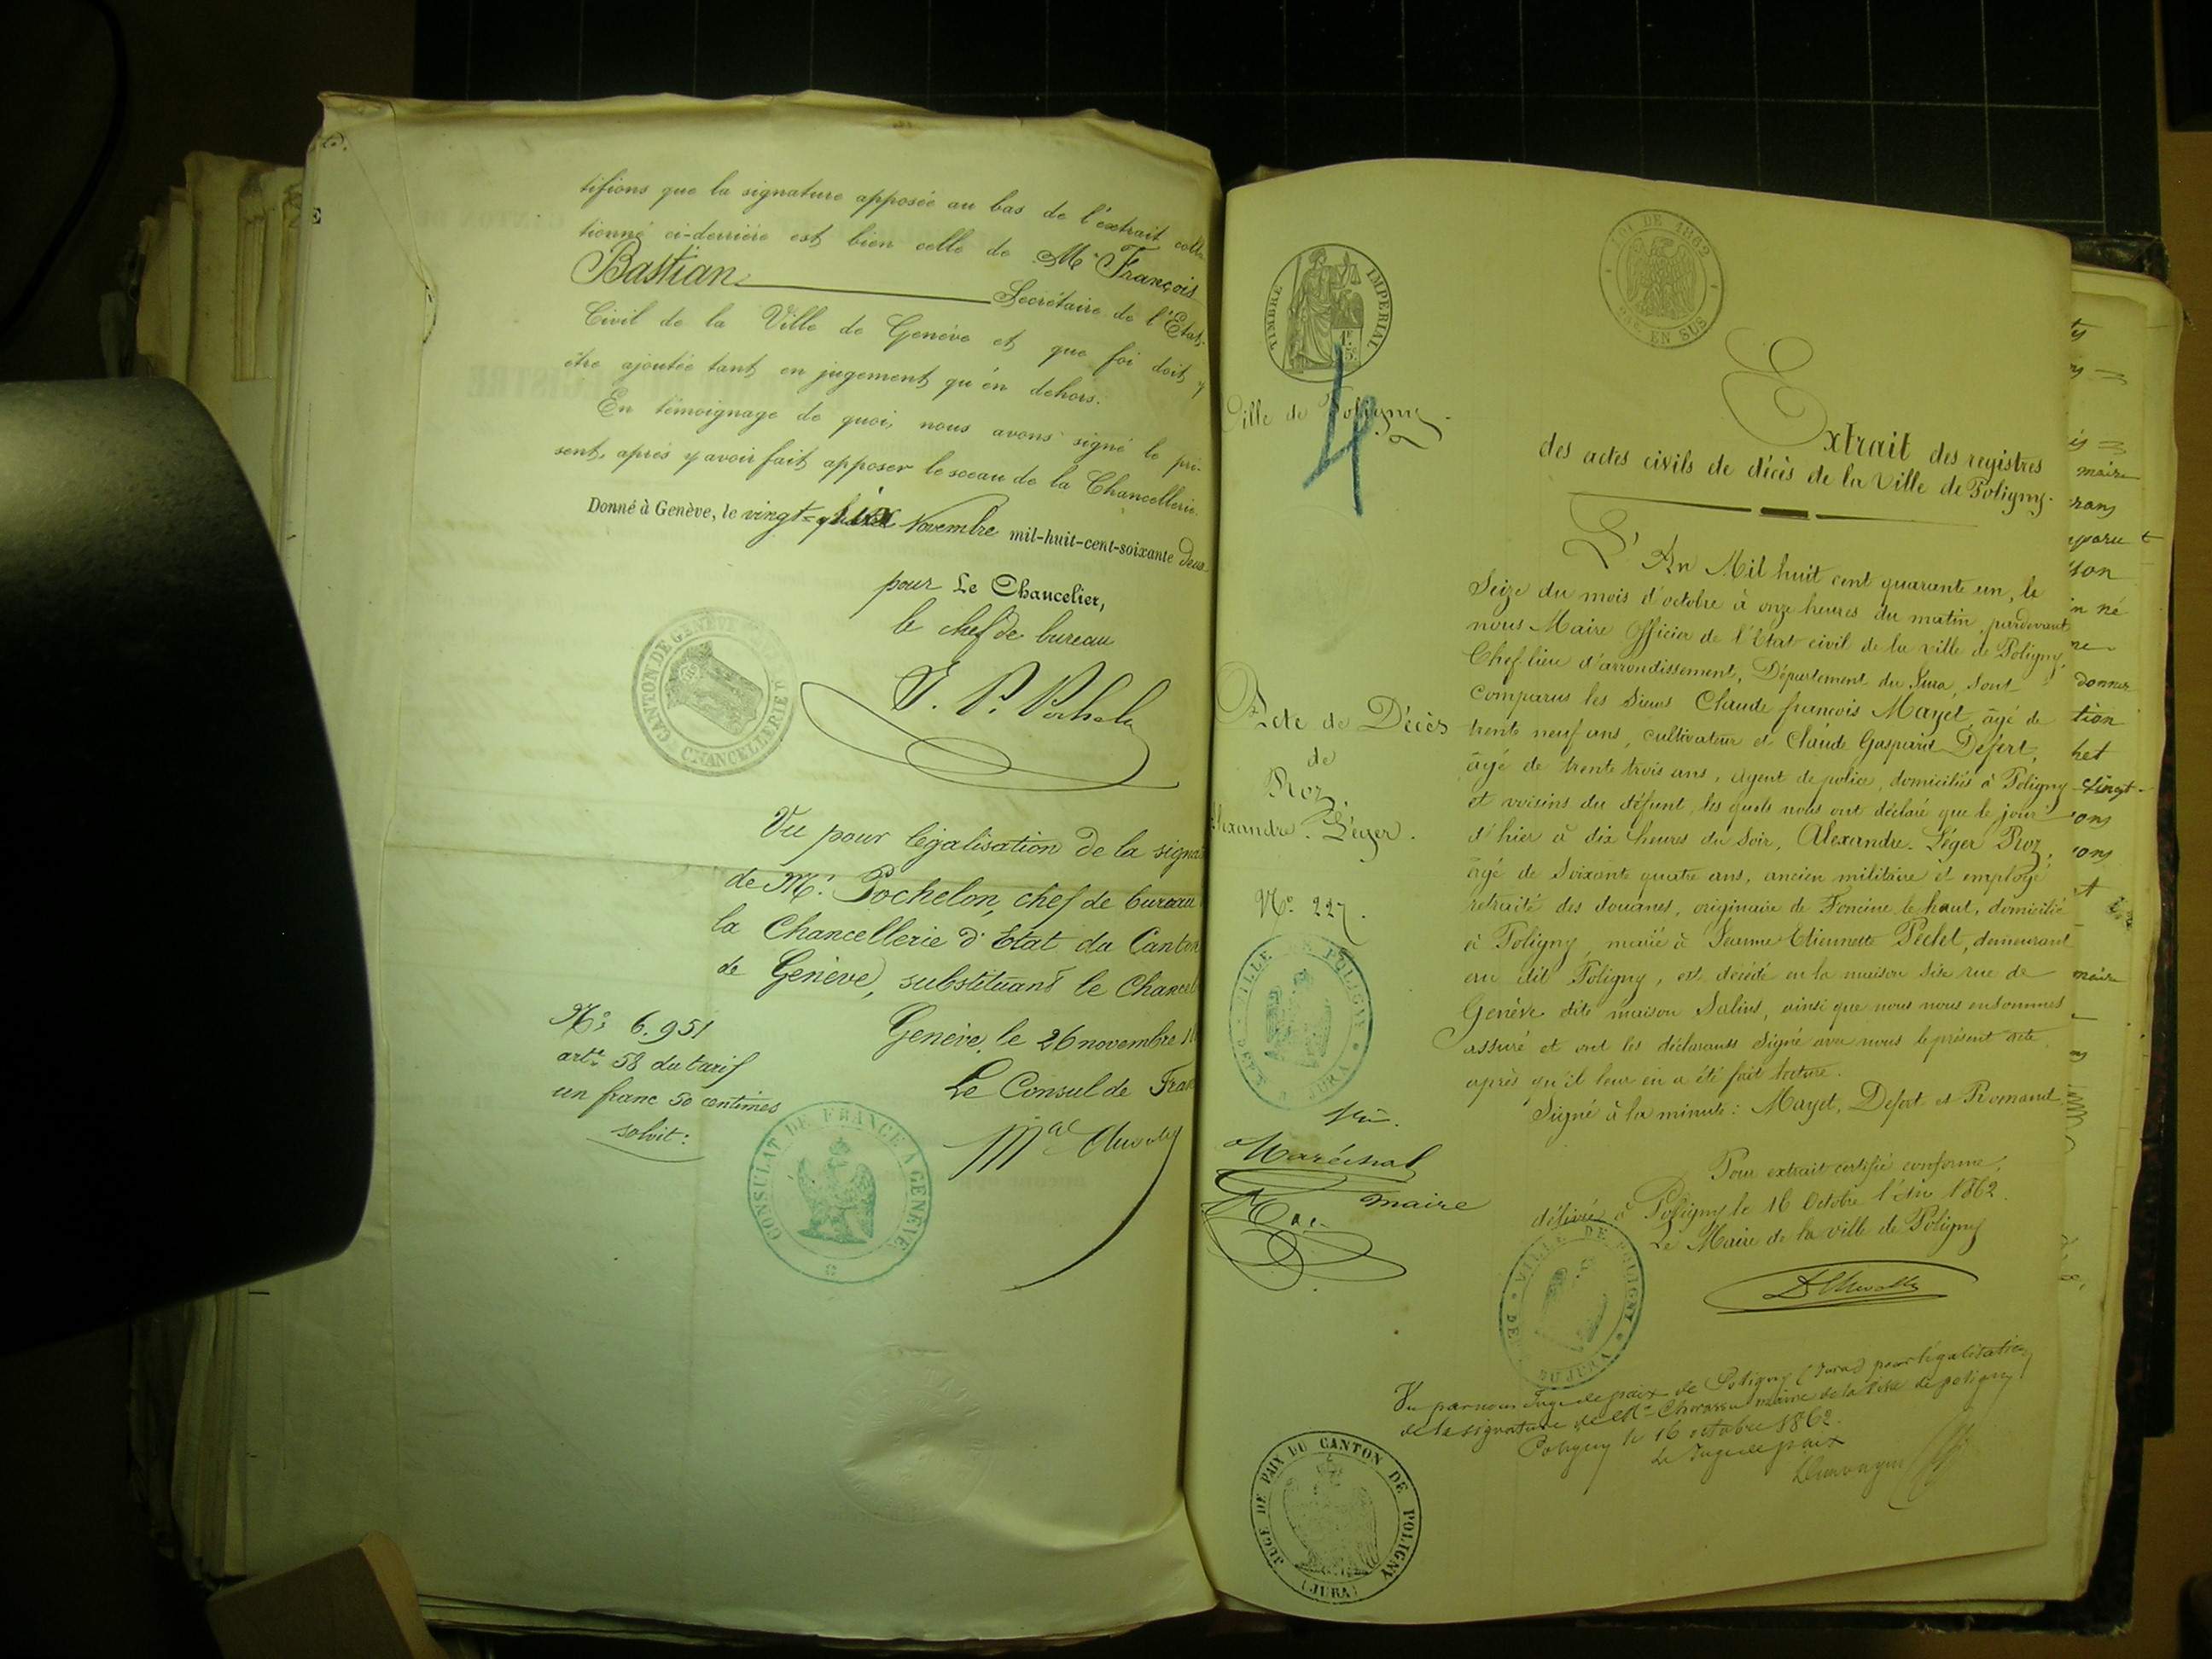 tifions que la signature apposée au bas de l'extrait
tionné ci-derrière est bien celle de Mr. François
Bastian Secrétaire de l'État
Civil de la Ville de Genève et que foi doit y
être ajoutée tant en jugement qu'en dehors.
En témoignage de quoi, nous avons signé le pré-
sent, après y avoir fait apposer le sceau de la Chancellerie.
Donné à Genève, le vingt-six Novembre mil-huit-cent-soixante deux
pour Le Chancelier,
le chef de bureau
CANTON DE GENÈVE
CHANCELLERIE
Vu pour légalisation de la
de Mr. Pochelon, chef de bureau
la Chancellerie d'État du Canton
de Genève, substituant le
Genève, le 26 novembre
Le Consul de
No. 6.951
art. 58 du tarif
un franc 50 centimes
solvit:
CONSULAT DE FRANCE A GENÈVE
TIMBRE IMPERIAL
1F
LOI DE 1862
EN SUS
4
Ville de Poligny
Extrait des registres
des actes civils de décès de la Ville de Poligny.
Acte de Décès
de
Roz,
Alexandre-Léger.
No. 227.
VILLE DE POLIGNY
JURA
Maréchal
maire
L'An Mil huit cent quarante un, le
Seize du mois d'octobre à onze heures du matin, pardevant
nous Maire Officier de l'Etat civil de la ville de Poligny,
Chef-lieu d'arrondissement, Département du Jura, Sont
Comparus les Sieurs Claude françois Mayet, âgé de
trente neuf ans, cultivateur et Claude Gaspard Defert,
âgé de trente trois ans, Agent de police, domiciliés à Poligny
et voisins du défunt, les quels nous ont déclaré que le jour
d'hier à dix heures du Soir, Alexandre-Léger Roz,
âgé de Soixante quatre ans, ancien militaire et employé
retraité des douanes, originaire de Foncine le haut, domicilié
à Poligny, marié à Jeanne Etiennette Péclet, demeurant
au dit Poligny, est décédé en la maison Sise rue de
Genève dite maison Salins, ainsi que nous nous en sommes
assuré et ont les déclarants Signé avec nous le présent acte
après qu'il leur en a été fait lecture.
Signé à la minute: Mayet, Defert et Romand.
Pour extrait certifié conforme,
délivré à Poligny le 16 Octobre l'An 1862.
Le Maire de la ville de Poligny
VILLE DE POLIGNY
DU JURA
Vu par nous Juge de paix de Poligny (Jura) pour légalisation
de la signature de Mr. maire de la ville de poligny
Poligny le 16 octobre 1862.
Le Juge de paix
JUGE DE PAIX DU CANTON DE POLIGNY
(JURA)
maire
donner
tion
vingt-
ons
ons
maire